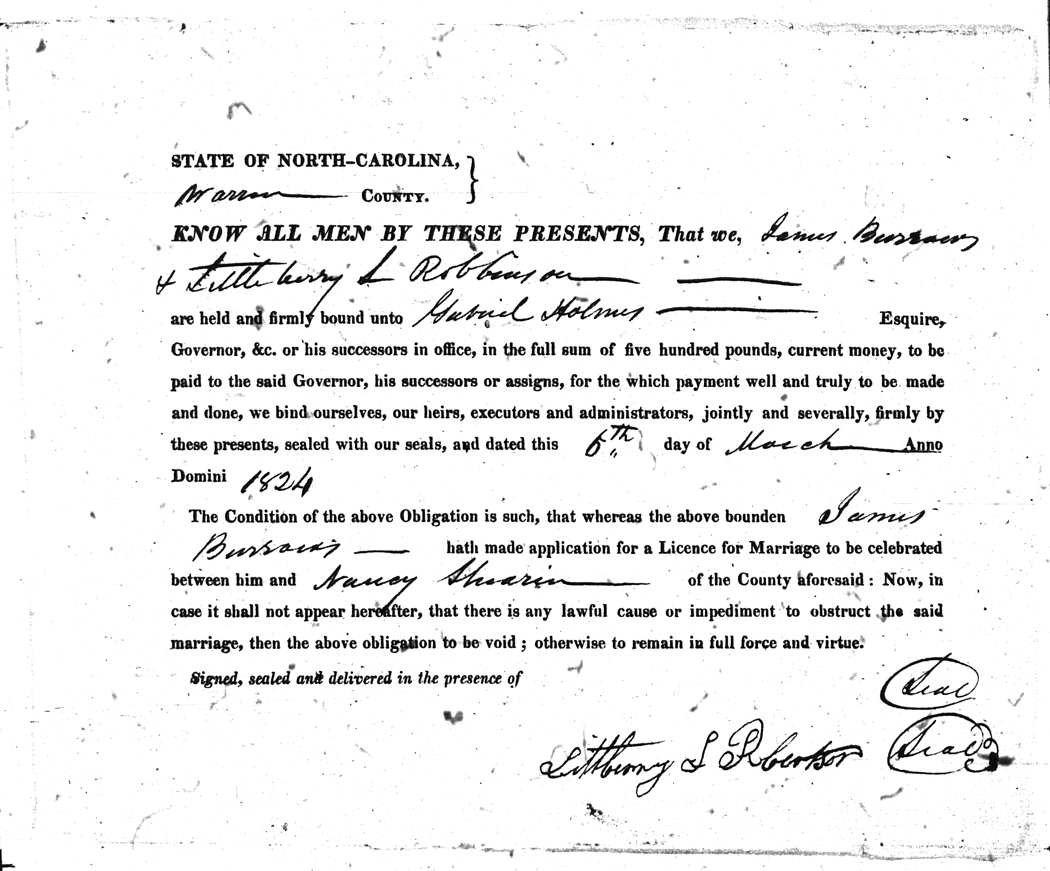 STATE OF NORTH-CAROLINA,
Warren COUNTY.
KNOW ALL MEN BY THESE PRESENTS, That we, James Burrows
& Littleberry L Robbinson
are held and firmly bound unto Gabriel Holmes Esquire,
Governor, &c. or his successors in office, in the full sum of five hundred pounds, current money, to be
paid to the said Governor, his successors or assigns, for the which payment well and truly to be made
and done, we bind ourselves, our heirs, executors and administrators, jointly and severally, firmly by
these presents, sealed with our seals, and dated this 6th day of March Anno
Domini 1824
The Condition of the above Obligation is such, that whereas the above bounden James
Burrows hath made application for a Licence for Marriage to be celebrated
between him and Nancy Shearin of the County aforesaid: Now, in
case it shall not appear hereafter, that there is any lawful cause or impediment to obstruct the said
marriage, then the above obligation to be void; otherwise to remain in full force and virtue.
Signed, sealed and delivered in the presence of
Seal
Littberry L Seal